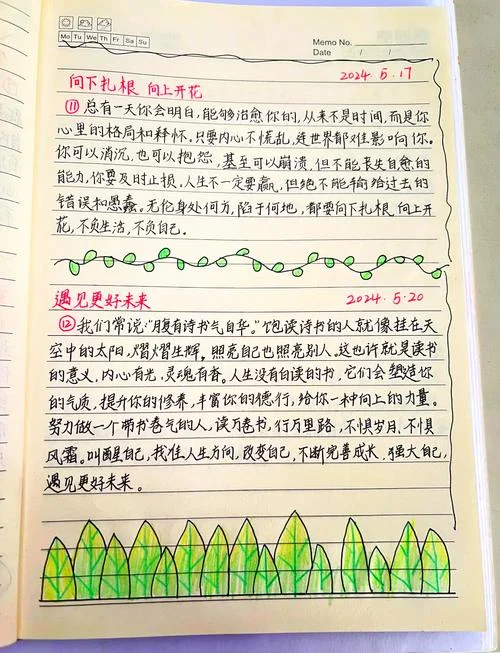 Mo Tu We Th Fr Sa Su
Memo No.
Date / /
向下扎根 向上开花 2024.5.17
⑪总有一天你会明白,能够治愈你的,从来不是时间,而是你
心里的格局和释怀。只要内心不慌乱,连世界都难影响你。
你可以消沉,也可以抱怨,甚至可以崩溃,但不能丧失自愈的
能力,你要及时止损,人生不一定要赢,但绝不能输给过去的
错误和愚蠢。无论身处何方,陷于何地,都要向下扎根,向上开
花,不负生活,不负自己。
遇见更好未来 2024.5.20
⑫我们常说:"腹有诗书气自华。"饱读诗书的人就像挂在天
空中的太阳,熠熠生辉。照亮自己也照亮别人。这也许就是读书
的意义,内心有光,灵魂有香。人生没有白读的书,它们会塑造你
的气质,提升你的修养,丰富你的德行,给你一种向上的力量。
努力做一个带书香气的人,读万卷书,行万里路,不惧岁月,不惧
风霜。叫醒自己,找准人生方向,改变自己,不断完善成长,强大自己,
遇见更好未来。